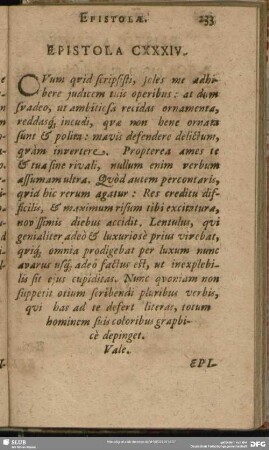 EPISTOLÆ. 233
EPISTOLA CXXXIV.
CVum qvid scripsisti, soles me adhi-
bere judicem tuis operibus: at dum
svadeo, ut ambitiosa recidas ornamenta,
reddasq; incudi, qvæ non bene ornata
sunt & polita: mavis defendere delictum,
qvàm invertere. Propterea ames te
& tua sine rivali, nullum enim verbum
assumam ultra. Qvòd autem percontaris,
qvid hic rerum agatur: Res creditu dif-
ficilis, & maximum risum tibi excitatura,
novissimis diebus accidit. Lentulus, qvi
genialiter adeò & luxuriosè prius vivebat,
qviq; omnia prodigebat per luxum nunc
avarus usq; adeò factus est, ut inexplebi-
lis sit ejus cupiditas. Nunc qvoniam non
suppetit otium scribendi pluribus verbis,
qvi has ad te defert literas, totum
hominem suis coloribus graphi-
cè depinget.
Vale.
EPI-
SLUB